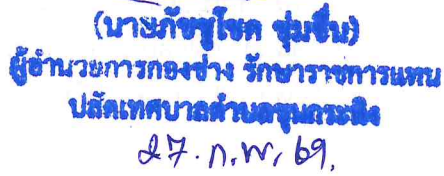 (นายภัชชูโชค ชุ่มชื่น)
ผู้อำนวยการกองช่าง รักษาราชการแทน
ปลัดเทศบาลตำบลขุนกระทิง
27. ก.พ. 69.